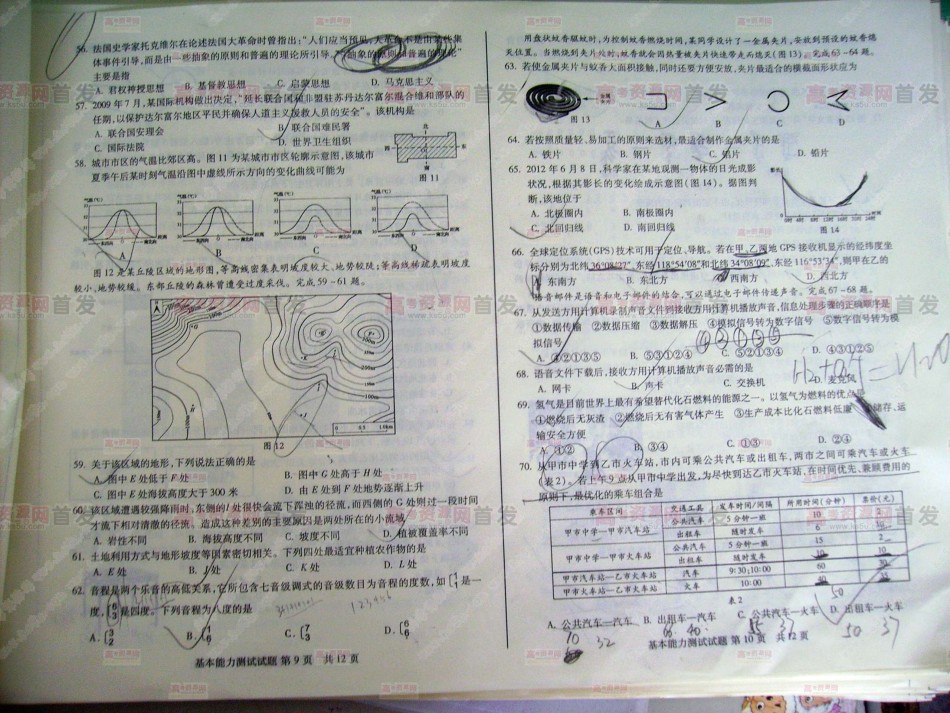 56. 法国史学家托克维尔在论述法国大革命时曾指出:“人们应当预见,大革命不是由某些集
体事件引导,而是由一些抽象的原则和普遍的理论所引导。”“抽象的原则和普遍的理论”
主要是指
A. 君权神授思想 B. 基督教思想 C. 启蒙思想 D. 马克思主义
57. 2009年7月,某国际机构做出决定,“延长联合国和非盟驻苏丹达尔富尔混合维和部队的
任期,以保护达尔富尔地区平民并确保人道主义援救人员的安全”。该机构是
A. 联合国安理会 B. 联合国难民署
C. 国际法院 D. 世界卫生组织
58. 城市市区的气温比郊区高。图11为某城市市区轮廓示意图,该城市
夏季午后某时刻气温沿图中虚线所示方向的变化曲线可能为
图11
A B C D
图12是某丘陵区域的地形图,等高线密集表明坡度较大、地势较陡;等高线稀疏表明坡度
较小、地势较缓。东部丘陵的森林曾遭受过度采伐。完成59-61题。
图12
59. 关于该区域的地形,下列说法正确的是
A. 图中E处低于F处 B. 图中G处高于H处
C. 图中E处海拔高度大于300米 D. 由E处到F处地势逐渐上升
60. 该区域遭遇较强降雨时,东侧的I处很快会流下浑浊的径流,而西侧的G处则过一段时间
才流下相对清澈的径流。造成这种差别的主要原因是两处所在的小流域
A. 岩性不同 B. 海拔高度不同 C. 坡度不同 D. 植被覆盖率不同
61. 土地利用方式与地形坡度等因素密切相关。下列四处最适宜种植农作物的是
A. E处 B. J处 C. K处 D. L处
62. 音程是两个乐音的高低关系,它所包含七音级调式的音级数目为音程的度数,如
是一
度,
是四度。下列音程为八度的是
A. B. C. D.
基本能力测试试题 第9页 共12页
用盘状蚊香驱蚊时,为控制蚊香燃烧时间,某同学设计了一金属夹片,夹放到预设的蚊香熄
灭位置。当燃烧到夹片处时,蚊香就会因热量被夹片快速带走而熄灭(图13)。完成63-64题。
63. 若使金属夹片与蚊香大面积接触,同时还要方便安放,夹片最适合的横截面形状应为
图13 A B C D
64. 若按照质量轻、易加工的原则来选材,最适合制作金属夹片的是
A. 铁片 B. 钢片 C. 铝片 D. 铅片
65. 2012年6月8日,科学家在某地观测一物体的日光成影
状况,根据其影长的变化绘成示意图(图14)。据图判
断,该地位于
A. 北极圈内 B. 南极圈内
C. 北回归线 D. 南回归线
图14
66. 全球定位系统(GPS)技术可用于定位、导航。若在甲、乙两地GPS接收机显示的经纬度坐
标分别为北纬36°08′27″、东经118°54′08″和北纬34°08′09″、东经116°53′34″,则甲在乙的
A. 东南方 B. 东北方 C. 西南方 D. 西北方
语音邮件是语音和电子邮件的结合,可以通过电子邮件传递声音。完成67-68题。
67. 从发送方用计算机录制声音文件到接收方用计算机播放声音,信息处理步骤的正确顺序是
①数据传输 ②数据压缩 ③数据解压 ④模拟信号转为数字信号 ⑤数字信号转为模
拟信号
A. ④②①③⑤ B. ⑤③①②④ C. ⑤②①③④ D. ④③①②⑤
68. 语音文件下载后,接收方用计算机播放声音必需的是
A. 网卡 B. 声卡 C. 交换机 D. 麦克风
69. 氢气是目前世界上最有希望替代化石燃料的能源之一。以氢气为燃料的优点是
①燃烧后无灰渣 ②燃烧后无有害气体产生 ③生产成本比化石燃料低廉 储存、运
输安全方便
A. ①② B. ③④ C. ①③ D. ②④
70. 从甲市中学到乙市火车站,市内可乘公共汽车或出租车,两市之间可乘汽车或火车
(表2)。若上午9点从甲市中学出发,为尽快到达乙市火车站,在时间优先、兼顾费用的
原则下,最优化的乘车组合是
乘车区间 交通工具 发车时间/间隔 所用时间(分钟) 票价(元)
甲市中学—甲市汽车站 公共汽车 5分钟一班 10 2
出租车 随时发车 6 10
甲市中学—甲市火车站 公共汽车 5分钟一班 15 2
出租车 随时发车 10 10
甲市汽车站—乙市火车站 汽车 9:30;10:00 60 30
甲市火车站—乙市火车站 火车 10:00 40
表2
A. 公共汽车—汽车 B. 出租车—汽车 C. 公共汽车—火车 D. 出租车—火车
基本能力测试试题 第10页 共12页